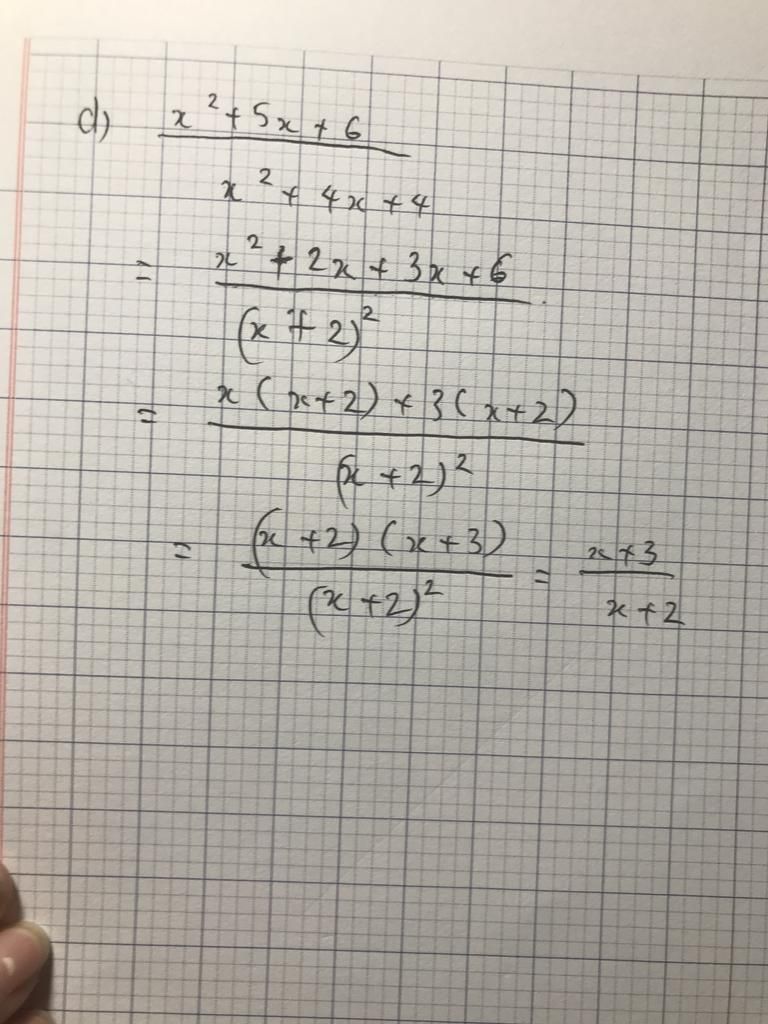 d) x² + 5x + 6
x² + 4x + 4
= x² + 2x + 3x + 6
(x + 2)²
= x (x+2) + 3 (x+2)
(x + 2)²
= (x + 2) (x + 3) = x + 3
(x + 2)² x + 2